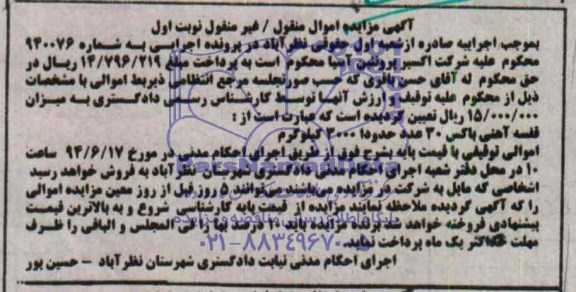 آگهی مزایده اموال منقول / غیر منقول نوبت اول
بموجب اجراییه صادره از شعبه اول حقوقی نظرآباد در پرونده اجرایی به شماره ۹۴۰۰۷۶
محکوم علیه شرکت اکسیر پروتئین آسیا محکوم است به پرداخت مبلغ ۱۴/۷۹۶/۲۱۹ ریال در
حق محکوم له آقای حسن باقری که حسب صورتجلسه مرجع انتظامی ذیربط اموالی با مشخصات
ذیل از محکوم علیه توقیف و ارزش آنها توسط کارشناس رسمی دادگستری به میزان
۱۵/۰۰۰/۰۰۰ ریال تعیین گردیده است که عبارت است از :
قفسه آهنی باکس ۳۰ عدد حدودا ۳۰۰۰ کیلوگرم
اموالی توقیفی با قیمت پایه بشرح فوق از طریق اجرای احکام مدنی در مورخ ۹۴/۶/۱۷ ساعت
۱۰ در محل دفتر شعبه اجرای احکام مدنی دادگستری شهرستان نظرآباد به فروش خواهد رسید
اشخاصی که مایل به شرکت در مزایده می‌باشند می‌توانند ۵ روز قبل از روز معین مزایده اموالی
را که آگهی گردیده ملاحظه نمایند مزایده از قیمت پایه کارشناسی شروع و به بالاترین قیمت
پیشنهادی فروخته خواهد شد برنده مزایده باید ۱۰ درصد بها را فی المجلس و الباقی را ظرف
مهلت حداکثر یک ماه پرداخت نماید.
۰۲۱-۸۸۳۴۹۶۷۰
اجرای احکام مدنی نیابت دادگستری شهرستان نظرآباد - حسین پور